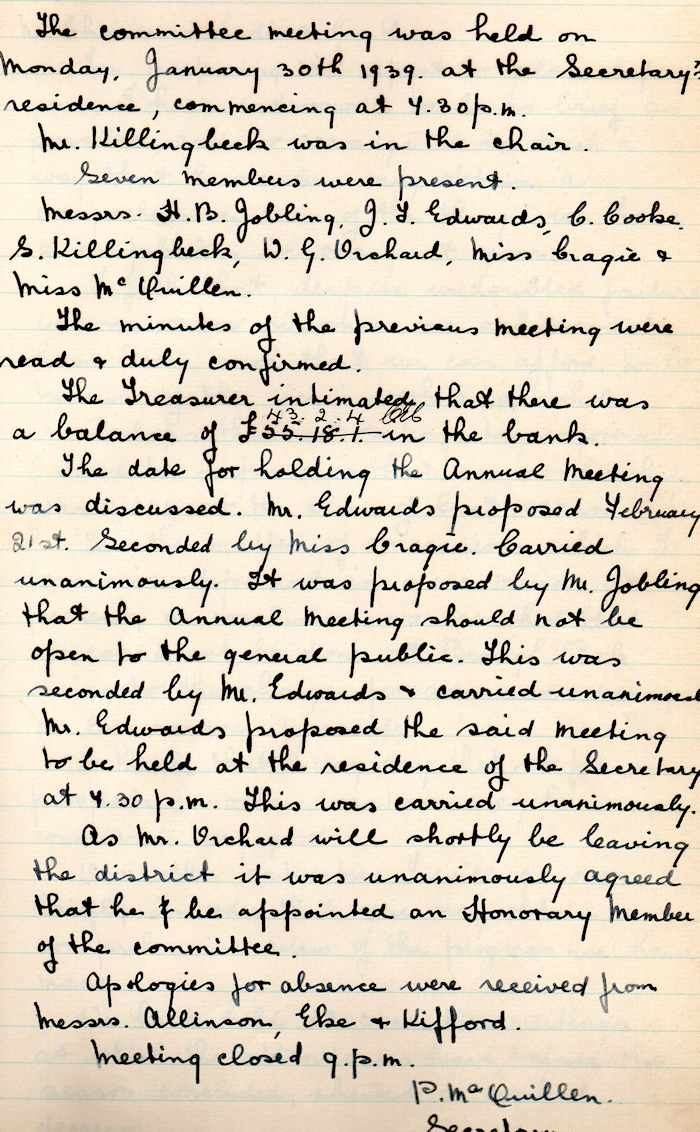 The committee meeting was held on
Monday, January 30th 1939. at the Secretary's
residence, commencing at 7.30 p.m.
Mr. Killingbeck was in the chair.
Seven members were present.
Messrs. H. B. Jobling, J. T. Edwards, C. Cooke,
S. Killingbeck, W. G. Orchard, Miss Cragie &
Miss McQuillen.
The minutes of the previous meeting were
read & duly confirmed.
The Treasurer intimated that there was
43. 2. 4
a balance of £55. 18. 1. in the bank.
The date for holding the Annual Meeting
was discussed. Mr. Edwards proposed February
21st. Seconded by Miss Cragie. Carried
unanimously. It was proposed by Mr. Jobling
that the Annual Meeting should not be
open to the general public. This was
seconded by Mr. Edwards & carried unanimousl
Mr. Edwards proposed the said meeting
to be held at the residence of the Secretary
at 7.30 p.m. This was carried unanimously.
As Mr. Orchard will shortly be leaving
the district it was unanimously agreed
that he be appointed an Honorary Member
of the committee.
Apologies for absence were received from
Messrs. Allinson, Eke & Kifford.
Meeting closed 9.p.m.
P. McQuillen.
Secretary